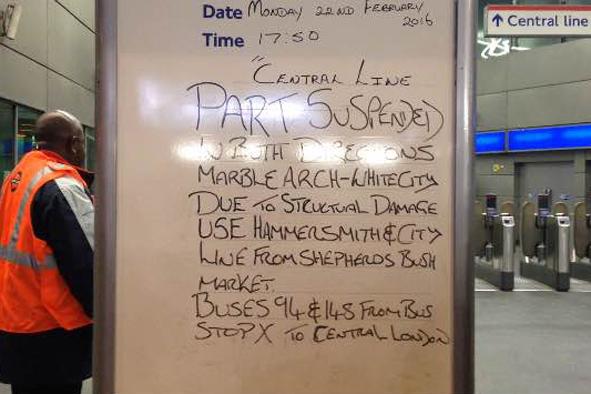 Date Monday 22nd February 2016
Time 17:50
"Central Line
PART SUSPENDED
IN BOTH DIRECTIONS
MARBLE ARCH-WHITE CITY
DUE TO STRUCTUAL DAMAGE
USE HAMMERSMITH & CITY
LINE FROM SHEPHERDS BUSH
MARKET.
BUSES 94 & 148 FROM BUS
STOP X TO CENTRAL LONDON
↑ Central line